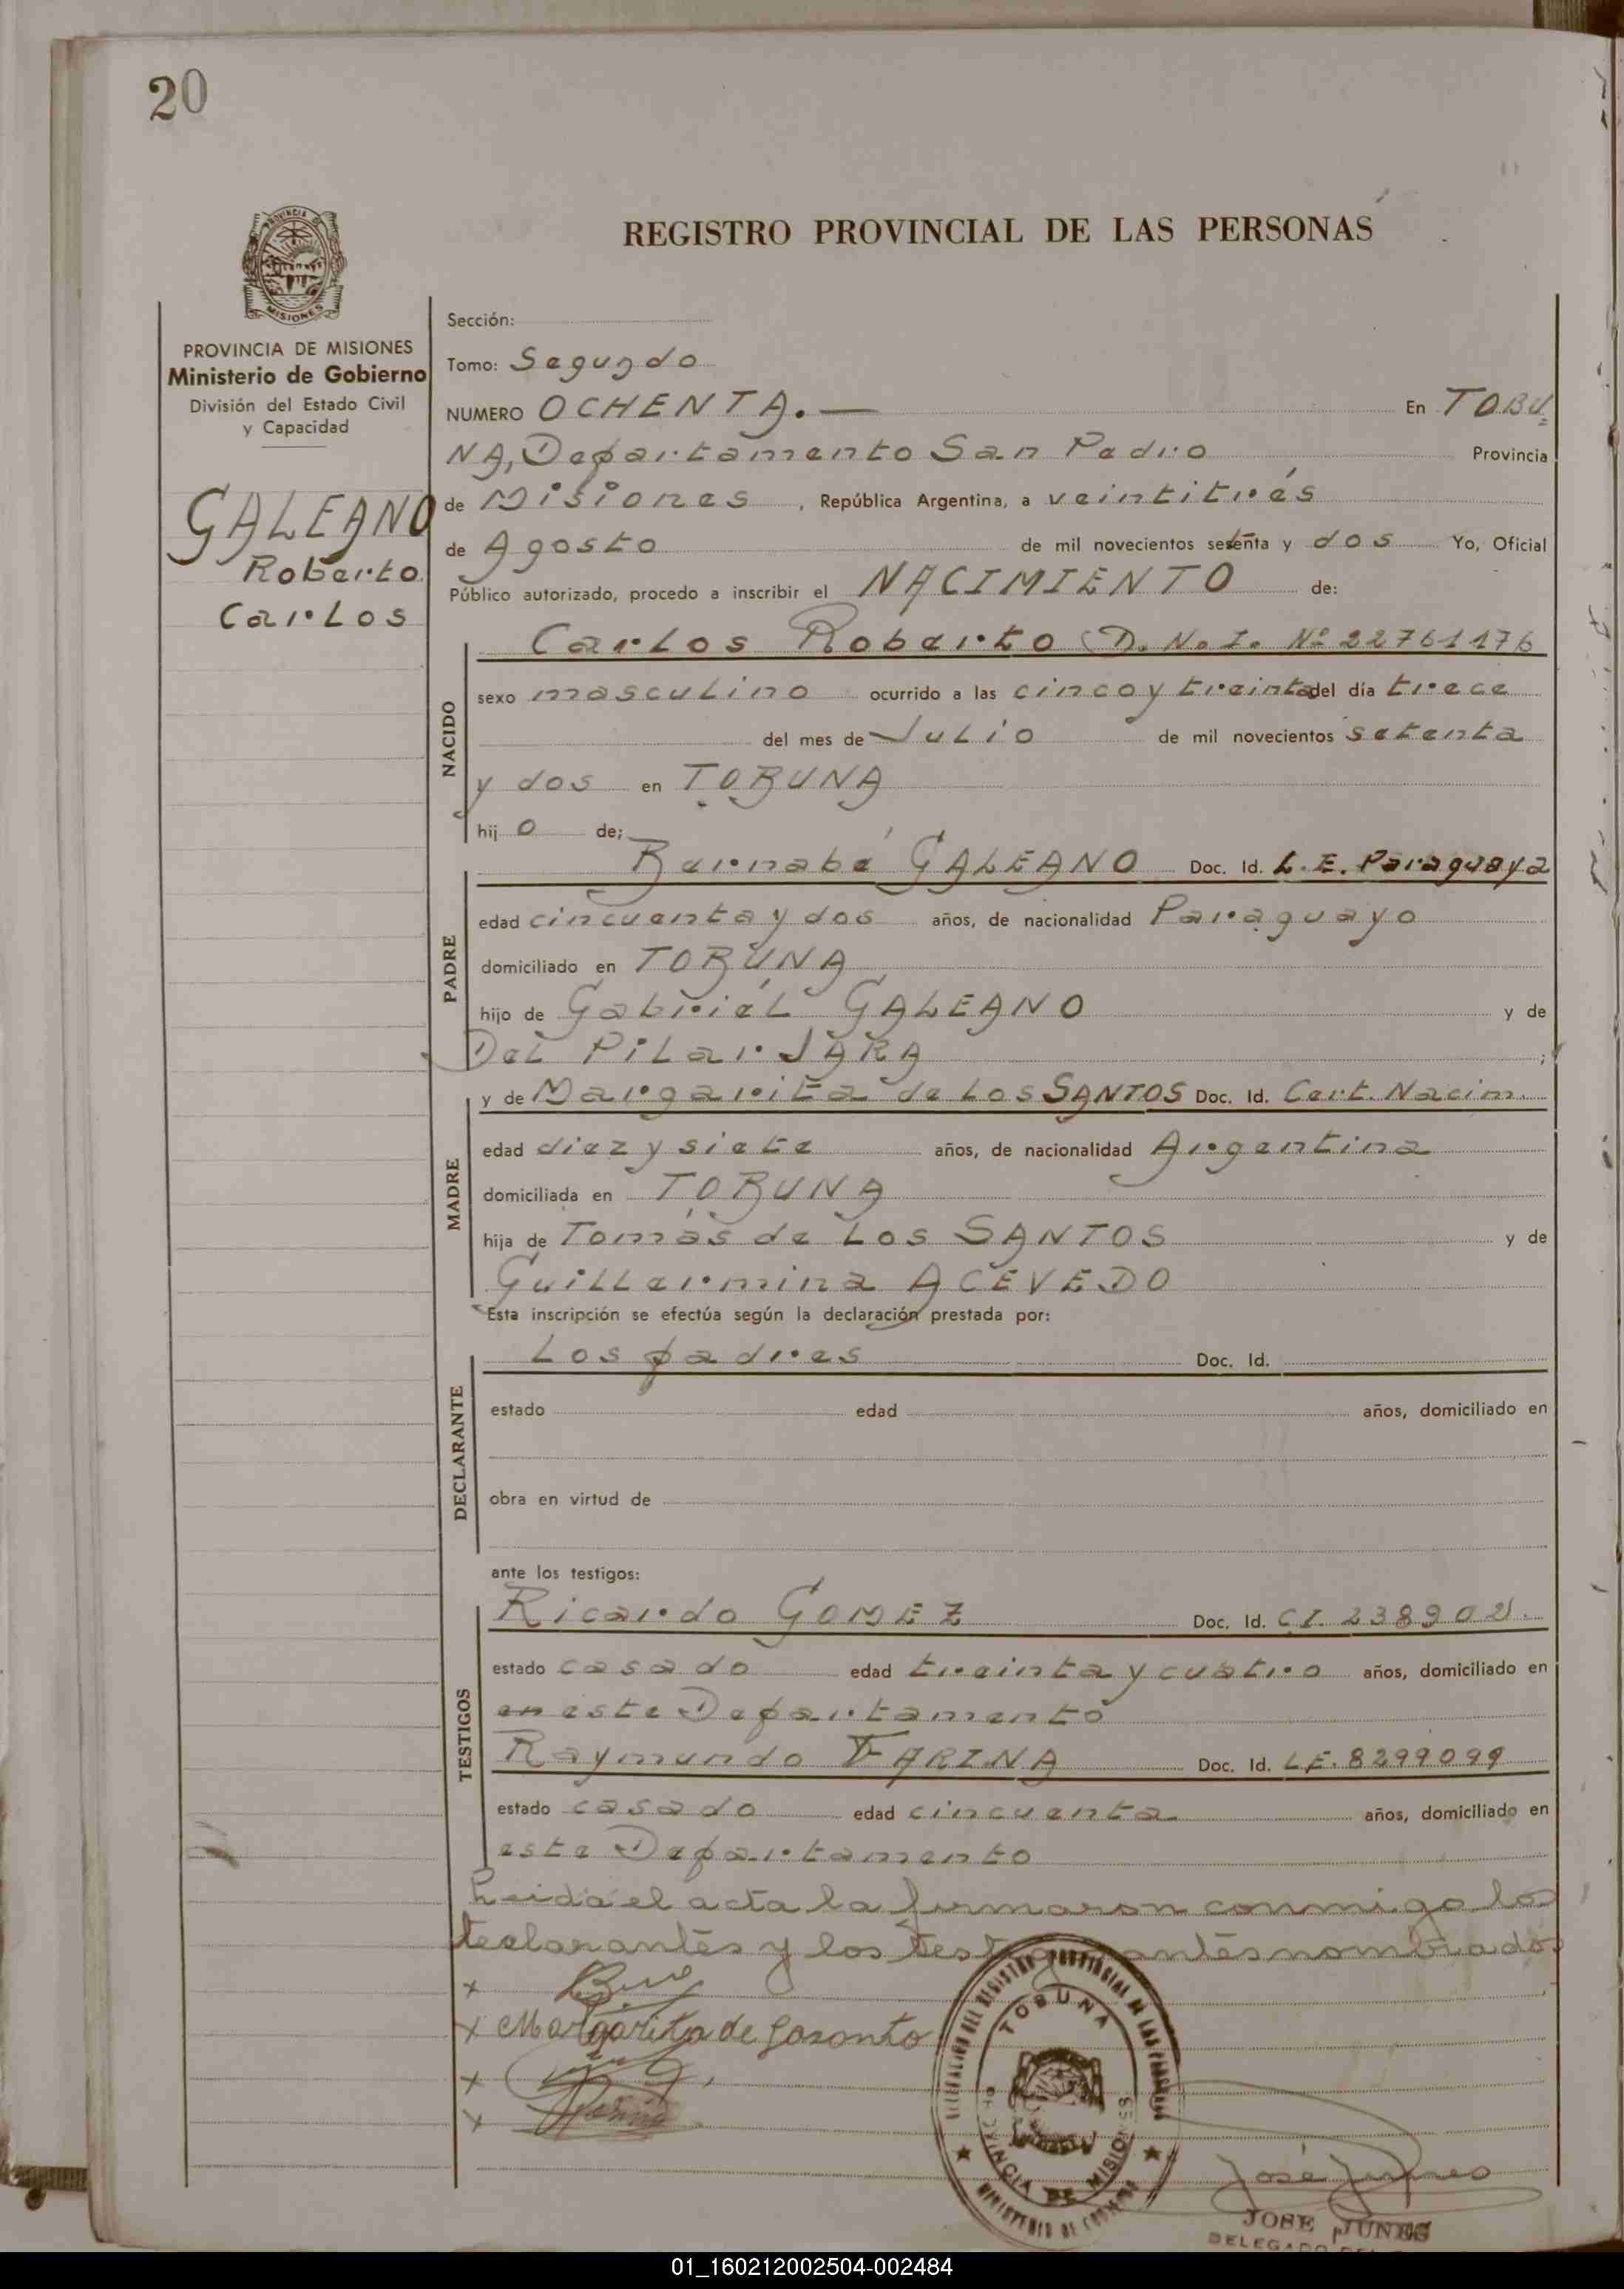 20
REGISTRO PROVINCIAL DE LAS PERSONAS
PROVINCIA DE MISIONES
Ministerio de Gobierno
División del Estado Civil
y Capacidad
GALEANO
Roberto
Carlos
Sección:
Tomo: Segundo
NUMERO OCHENTA.— En TOBU
NA, Departamento San Pedro Provincia
de Misiones, República Argentina, a veintitrés
de Agosto de mil novecientos setenta y dos Yo, Oficial
Público autorizado, procedo a inscribir el NACIMIENTO de:
NACIDO
Carlos Roberto D.N.I. Nº 22761176
sexo masculino ocurrido a las cinco y treinta del día trece
del mes de Julio de mil novecientos setenta
y dos en TOBUNA
hijo de;
PADRE
Bernabé GALEANO Doc. Id. L.E. Paraguaya
edad cincuenta y dos años, de nacionalidad Paraguayo
domiciliado en TOBUNA
hijo de Gabriél GALEANO y de
Del Pilar JARA ;
MADRE
y de Margarita de Los SANTOS Doc. Id. Cert. Nacim.
edad diez y siete años, de nacionalidad Argentina
domiciliada en TOBUNA
hija de Tomás de Los SANTOS y de
Guillermina ACEVEDO
Esta inscripción se efectúa según la declaración prestada por:
DECLARANTE
Los padres Doc. Id.
estado edad años, domiciliado en
obra en virtud de
ante los testigos:
TESTIGOS
Ricardo GOMEZ Doc. Id. C.I. 238902.
estado casado edad treinta y cuatro años, domiciliado en
en este Departamento
Raymundo FARINA Doc. Id. LE. 8299099
estado casado edad cincuenta años, domiciliado en
este Departamento
Leida el acta la firmaron conmigo los
declarantes y los testigos antes nombrados
x
x Margarita de
x
x
TOBUNA
PROVINCIA DE MISIONES
José Junes
JOSE JUNES
DELEGADO
01_160212002504-002484